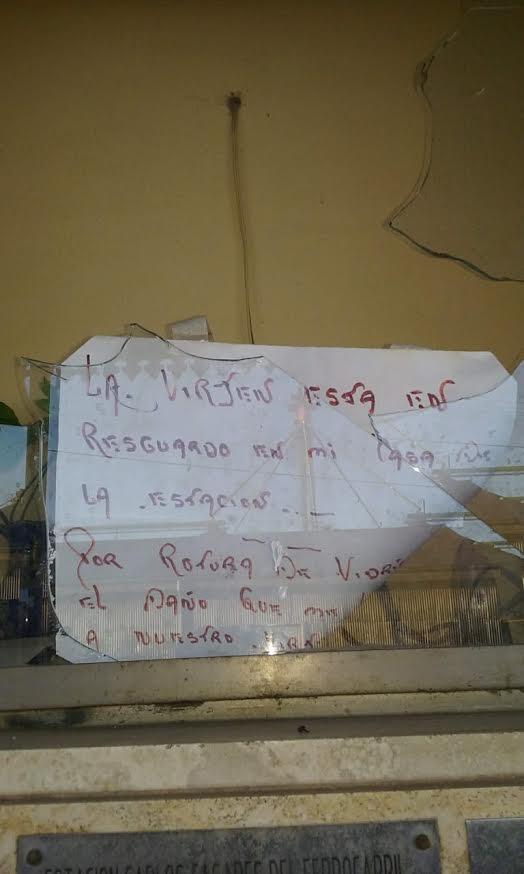 LA. VIRJEN ESTA EN
RESGUARDO EN mi CASA DE
LA ESTACION...
POR ROTURA DE
EL DAÑO QUE ME
A NUESTRO
ESTACION CARLOS CASARES DEL FERROCARRIL